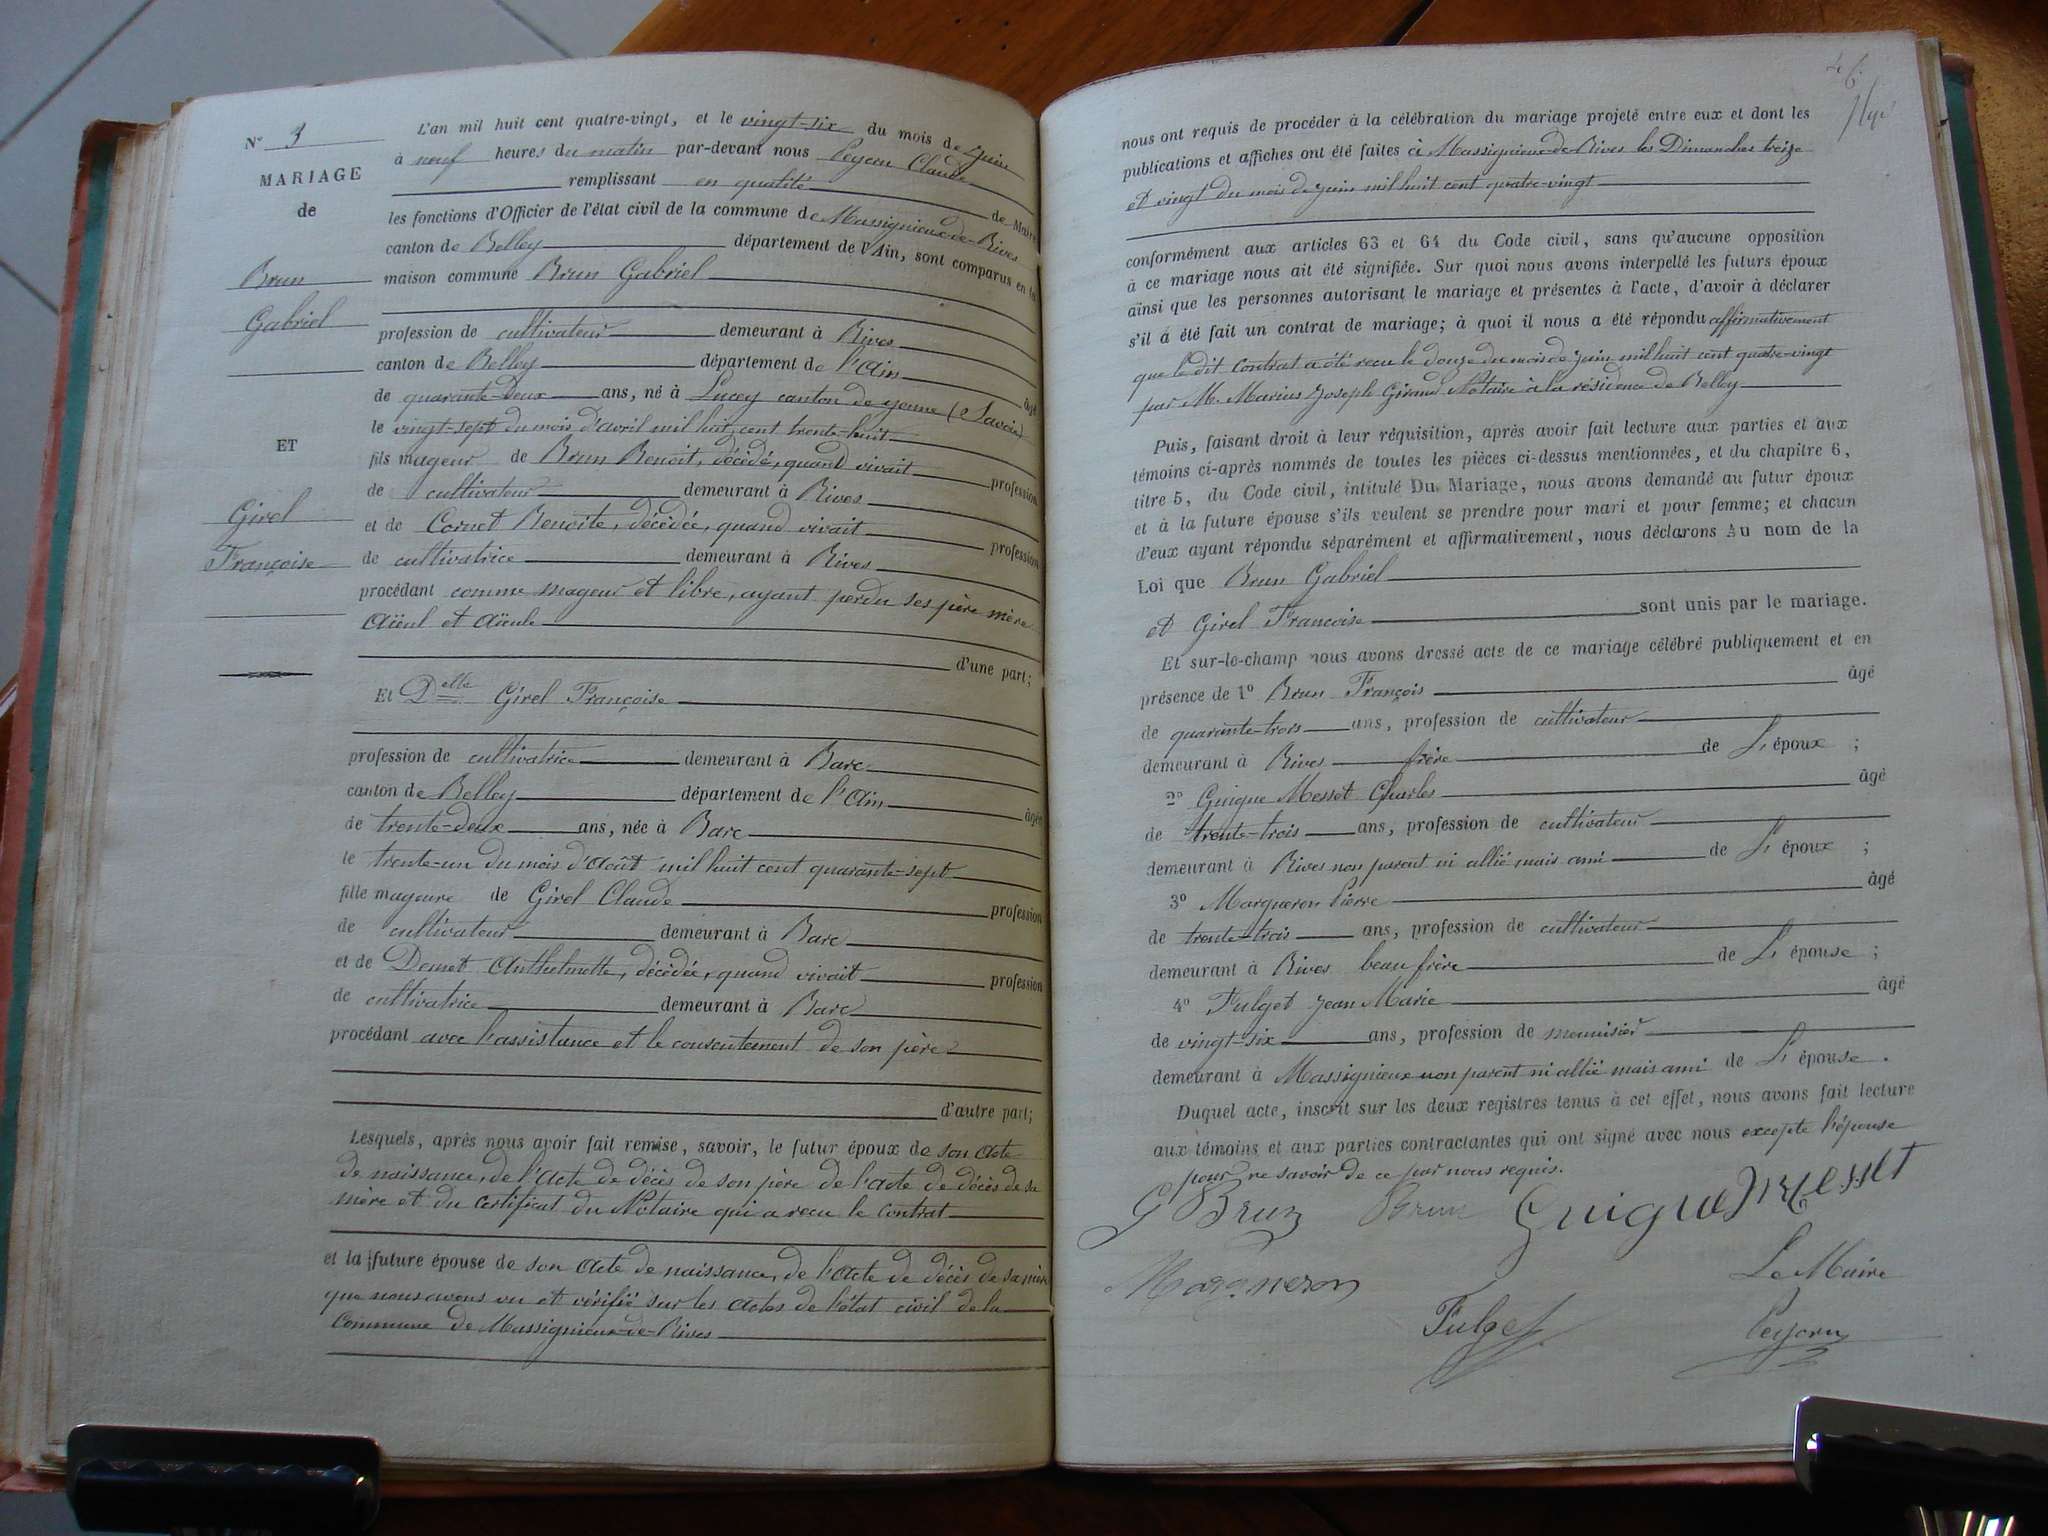 N° 3
MARIAGE
de
Brun
Gabriel
ET
Girel
Françoise
L'an mil huit cent quatre-vingt, et le vingt-six du mois de juin
à neuf heures du matin par-devant nous Peysson Claude
remplissant en qualité de Maire
les fonctions d'Officier de l'état civil de la commune de Massignieux-de-Rives
canton de Belley département de l'Ain, sont comparus en la
maison commune Brun Gabriel
profession de cultivateur demeurant à Rives
canton de Belley département de l'Ain âgé
de quarante-deux ans, né à Lucey canton de yenne (Savoie)
le vingt-sept du mois d'avril mil huit cent trente-huit
fils mageur de Brun Benoit, décédé, quand vivait profession
de cultivateur demeurant à Rives
et de Cornet Benoite, décédée, quand vivait profession
de cultivatrice demeurant à Rives
procédant comme mageur et libre, ayant perdu ses père mère
aïeul et aïeule
d'une part;
Et Delle Girel Françoise
profession de cultivatrice demeurant à Barc
canton de Belley département de l'Ain âgée
de trente-deux ans, née à Barc
le trente-un du mois d'Août mil huit cent quarante-sept
fille mageure de Girel Claude profession
de cultivateur demeurant à Barc
et de Demet Anthelmette, décédée, quand vivait profession
de cultivatrice demeurant à Barc
procédant avec l'assistance et le consentement de son père
d'autre part;
Lesquels, après nous avoir fait remise, savoir, le futur époux de son acte
de naissance, de l'acte de décès de son père de l'acte de décès de sa
mère et du certificat du Notaire qui a recu le contrat
et la future épouse de son acte de naissance, de l'acte de décès de sa mère
que nous avons vu et vérifié sur les actes de l'état civil de la
Commune de Massignieux-de-Rives
46
nous ont requis de procéder à la célébration du mariage projeté entre eux et dont les
publications et affiches ont été faites à Massignieux-de-Rives les Dimanches treize
et vingt du mois de juin mil huit cent quatre-vingt
conformément aux articles 63 et 64 du Code civil, sans qu'aucune opposition
à ce mariage nous ait été signifiée. Sur quoi nous avons interpellé les futurs époux
ainsi que les personnes autorisant le mariage et présentes à l'acte, d'avoir à déclarer
s'il a été fait un contrat de mariage; à quoi il nous a été répondu affirmativement
que le dit contrat a été recu le douze du mois de juin mil huit cent quatre-vingt
par M. Marius Joseph Girand Notaire à la résidence de Belley
Puis, faisant droit à leur réquisition, après avoir fait lecture aux parties et aux
témoins ci-après nommés de toutes les pièces ci-dessus mentionnées, et du chapitre 6,
titre 5, du Code civil, intitulé Du Mariage, nous avons demandé au futur époux
et à la future épouse s'ils veulent se prendre pour mari et pour femme; et chacun
d'eux ayant répondu séparément et affirmativement, nous déclarons Au nom de la
Loi que Brun Gabriel
et Girel Francoise sont unis par le mariage.
Et sur-le-champ nous avons dressé acte de ce mariage célébré publiquement et en
présence de 1° Brun François âgé
de quarante-trois ans, profession de cultivateur
demeurant à Rives frère de L'époux ;
2° Guigue Messet Charles âgé
de trente-trois ans, profession de cultivateur
demeurant à Rives non parent ni allié mais ami de L'époux ;
3° Margueron Pierre âgé
de trente-trois ans, profession de cultivateur
demeurant à Rives beau frère de L'épouse ;
4° Fulget Jean Marie âgé
de vingt-six ans, profession de menuisier
demeurant à Massignieux non parent ni allié mais ami de L'épouse.
Duquel acte, inscrit sur les deux registres tenus à cet effet, nous avons fait lecture
aux témoins et aux parties contractantes qui ont signé avec nous excepte l'épouse
pour ne savoir de ce par nous requis.
G Brun Brun Guigue Messet
Margueron Le Maire
Fulget